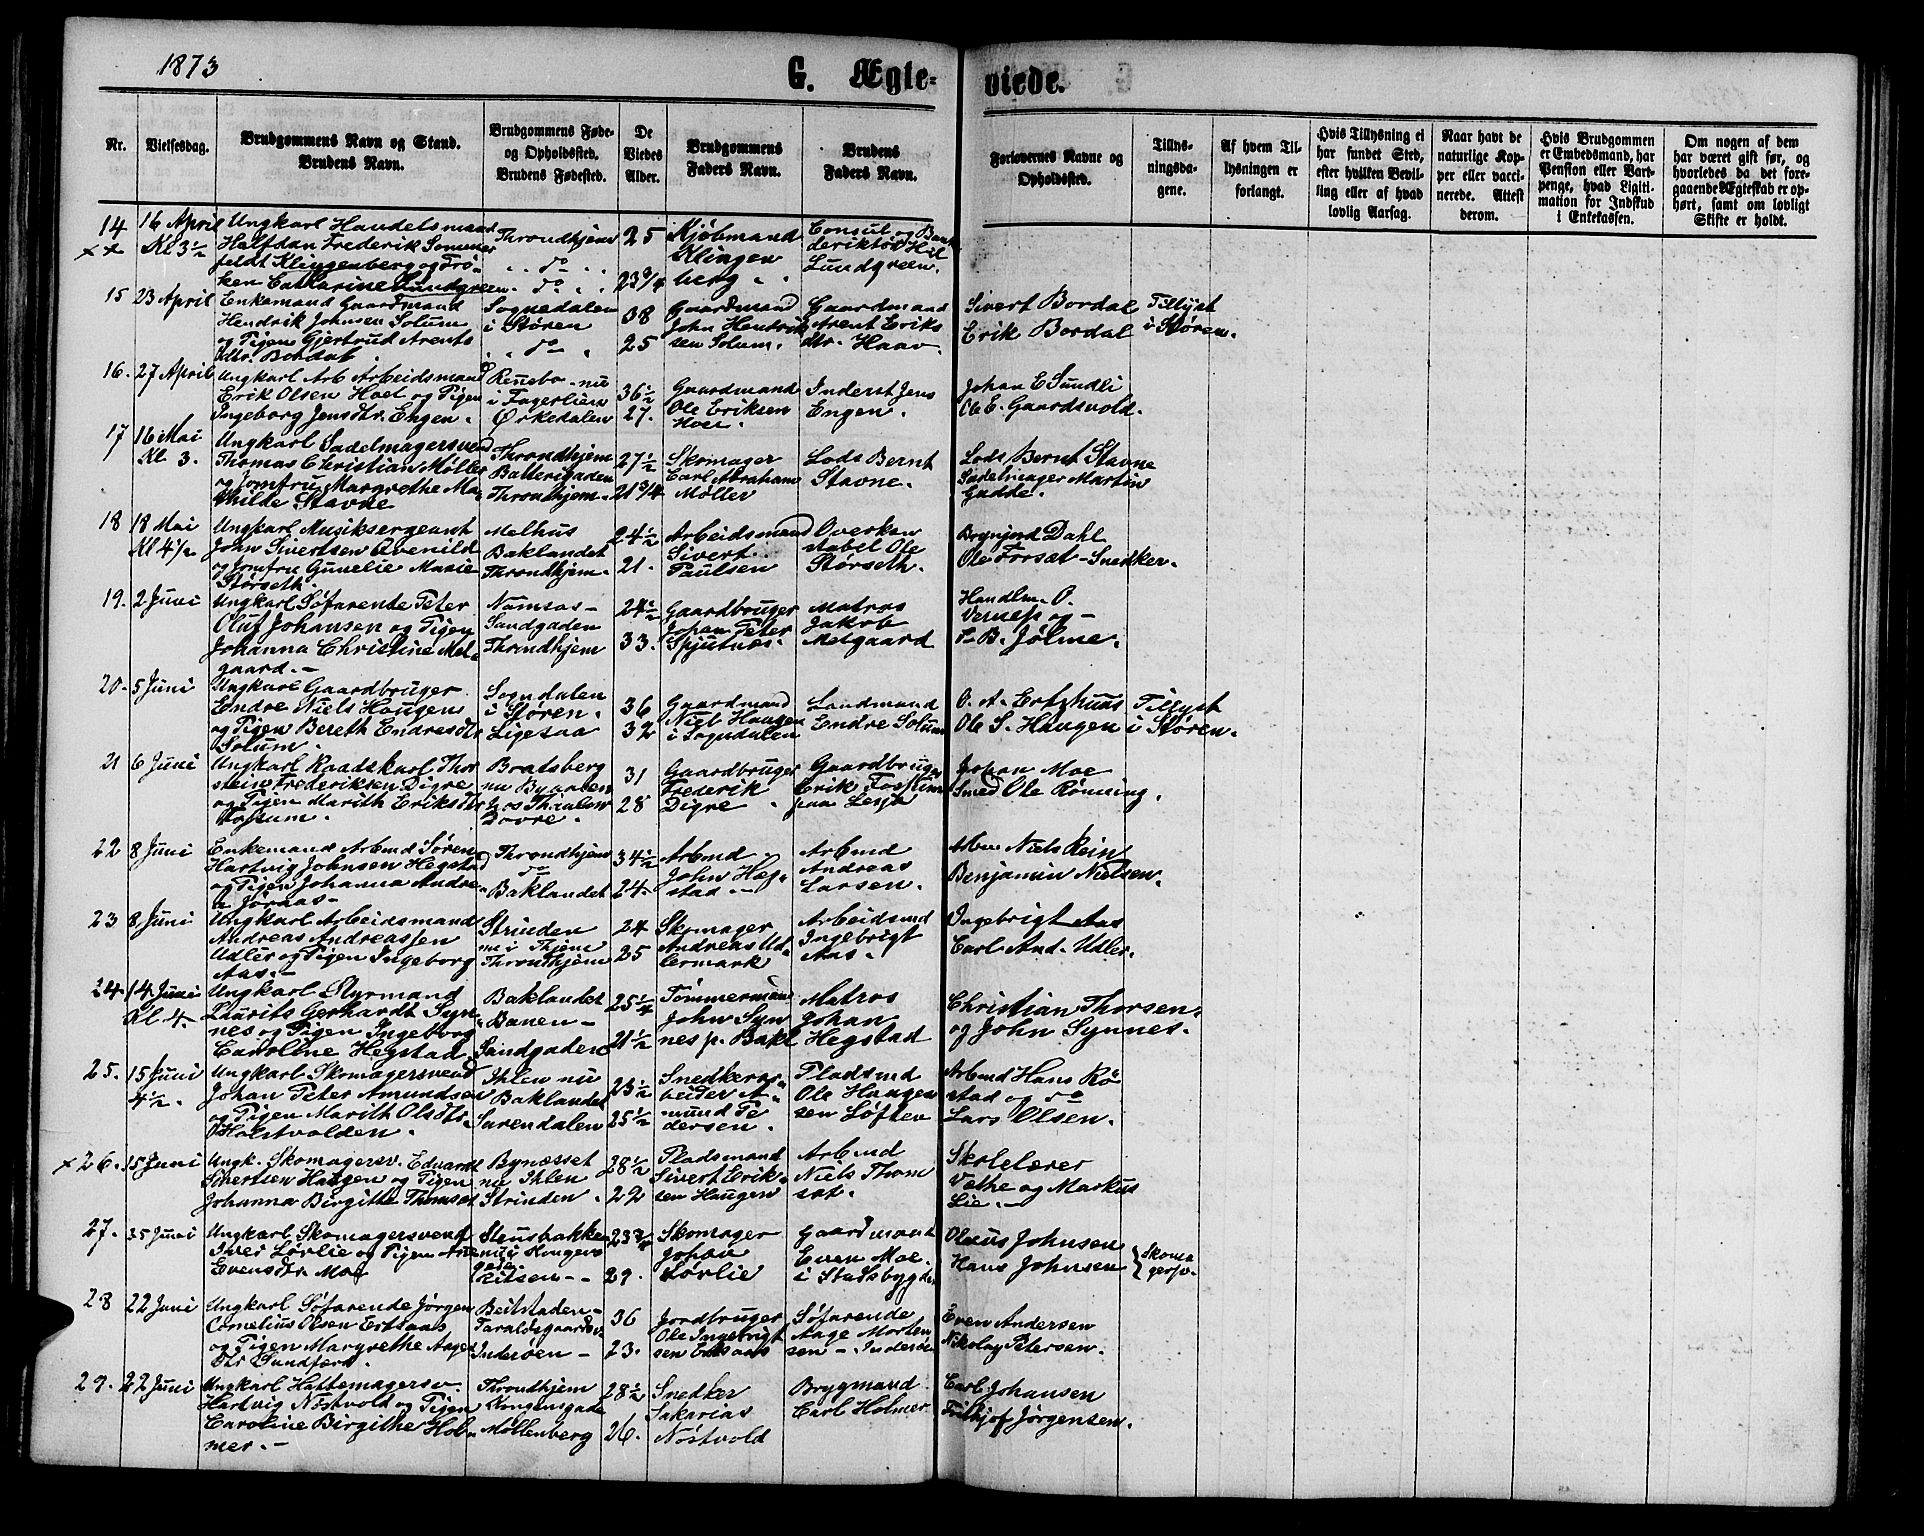 1873
G. Ægte-
viede.
Nr.
Vielsesdag.
Brudgommens Navn og Stand.
Brudens Navn.
Brudgommens Føde-
og Opholdssted.
Brudens Fødested.
De
Viedes
Alder.
Brudgommens
Faders Navn.
Brudens
Faders Navn.
Forlovernes Navne og
Opholdssted.
Tillys-
ningsda-
gene.
Af hvem Til-
lysningen er
forlangt.
Hvis Tillysning ei
har fundet Sted,
efter hvilken Bevil-
ling eller af hvad
lovlig Aarsag.
Naar havt de
naturlige Kop-
per eller vacci-
nerede. Attest
derom.
Hvis Brudgommen
er Embedsmand, har
Pension eller Vart-
penge, hvad Ligiti-
mation for Indskud
i Enkekassen.
Om nogen af dem
har været gift før, og
hvorledes da det fore-
gaaende Ægteskab er op-
hørt, samt om lovligt
Skifte er holdt.
14
16 April
Kl 3½
Ungkarl Handelsmand
Halfdan Frederik Sommer
feldt Klingenberg og Frø-
ken Catharine Lundgreen
Throndhjem
do
do
25
23¾
Kjøbmand
Klingen
berg
Consul og Bank
deriktør Hil
Lundgreen.
15
23 April
Enkemand Gaardmand
Hendrik Johnsen Solum
og Pigen Gjertrud Arents
dtr. Bordal
Sognedalen
i Støren
do
38
25
Gaardmand
John Hendrik
sen Solum.
Gaardmand
Arent Eriks
dtr. Haav.
Sivert Bordal
Erik Bordal
Tillyst
i Støren.
16.
27 April
Ungkarl Arb Arbeidsmand
Erik Olsen Hoel og Pigen
Ingeborg Jens dtr. Engen.
Rennebo - nu
i Fagerlien
Ørkedalen
36½
27.
Gaardmand
Ole Eriksen
Hoel.
Inderst Jens
Engen.
Johan E Sundli
Ole E. Gaardsvold.
17
16 Mai
Kl 3.
Ungkarl Sadelmagersvend
Thomas Christian Møller
og Jomfru Margrethe Ma-
thilde Stavne
Throndhjem
Batterigaden
Throndhjem.
27½
21¾
Skomager
Carl Abraham
Møller
Lods Bernt
Stavne.
Lods Bernt Stavne
Sadelmager Martin
Gadde.
18
18 Mai
Kl 4½
Ungkarl Musiksergeant
John Sivertsen Qvenild
og Jomfru Gunelie Marie
Størseth.
Melhus
Baklandet
Throndhjem.
24½
21.
Arbeidsmand
Sivert
Paulsen
Overkon
stabel Ole
Størseth.
Brynjord Dahl
Ole Forsæt - Snedker.
19.
2 Juni
Ungkarl Søfarende Peter
Oluf Johansen og Pigen
Johanna Christine Mel-
gaard.-
Namsos-
Sandgaden
Throndhjem
24½
33.
Gaardbruger
Johan Peter
Spjutnes.
Matros
Jakob
Melgaard
Handlm. O.
Verness og-
L. B. Jølme.
20.
5 Juni
Ungkarl Gaardbruger
Endre Niels Haugen
og Pigen Bereth Endresdtr
Solum.
Sogndalen
i Støren.
Ligesaa
36
32
Gaardmand
Niels Haugen
i Sogndalen
Landmand
Endre Solum
O. A. Ertzhuus
Ole S. Haugen
Tillyst
i Støren.
21
6 Juni
Ungkarl Raadskarl Thor
stein Frederiksen Digre
og Pigen Marith Eriksdtr
Fossum.
Bratsberg
nu Byaasen
Dovre.
31
28
Gaardbruger
Frederik
Digre
Gaardbruger
Erik Fossum
paa Lesja
Johan Moe
Smed Ole Rønning.
22
8 Juni
Enkemand Arbmd Søren
Hartvig Johnsen Hegstad
og Pigen Johanna Andre-
Throndhjem
do
Baklandet
34½
24.
Arbmd
John Heg-
stad.-
Arbmd
Andreas
Larsen.
Arbm Niels Rein
Benjamin Nielsen.
23
8 Juni
Ungkarl Arbeidsmand
Andreas Andreassen
Udler og Pigen Ingeborg
Aas.-
Strinden
nu i Thjem
Throndhjem
24
25
Skomager
Andreas Ud-
lermark
Arbeidsmd
Ingebrigt
Aas.
Ingebrigt Aas
Carl And. Udler.
24.
14 Juni
Kl 4.
Ungkarl Styrmand
Laurits Gerhardt Syn-
nes og Pigen Ingeborg
Caroline Hegstad
Baklandet
Banen-
Sandgaden
25¼
21½
Tømmermand
John Syn
nes p. Bakl
Matros
Johan
Hegstad
Christian Thorsen.
og John Synnes.
25.
15 Juni
4½.
Ungkarl Skomagersvend
Johan Peter Amundsen
og Pigen Marith Olsdtr.
Holstvolden.
Ihlen nu
Baklandet
Surendalen
23½
25½
Snedkerar-
beider A-
mund Pe
dersen.
Pladsmd
Ole Haugen
sen Løften
Arbmd Hans Rø
stad og do
Lars Olsen.
26.
15 Juni
Ungk. Skomagersv. Edvardt
Sivertsen Haugen og Pigen
Johanna Birgitte Thomsat
Bynæsset
nu Ihlen
Strinden.
28½
22
Pladsmand
Sivert Erik-
sen Haugen
Arbmd
Niels Thom
sat.
Skolelærer
Væthe og Markus
Lie.-
27.
15 Juni
Ungkarl Skomagersvend
Iver Lørlie og Pigen Ane
Evensdtr. Moe
Stensbakken
nu i Kongens
gade.
Reitsen--
23¾
29.
Skomager
Johan
Lørlie
Gaardmand
Even Moe
i Stadsbygden
Olaus Johnsen
Hans Johnsen
Skoma
gersv.
28
22 Juni
Ungkarl Søfarende Jørgen
Cornelius Olsen Ertsaas
og Pigen Margrethe Aages
dtr Sundfær.
Beitstaden-
Taraldsgaardsv
Inderøen-
36
23.
Jordbruger
Ole Ingebrigt
sen Ertsaas
Søfarende
Aage Morten
sen - Inderøen
Even Andersen
Nikolay Petersen.
29.
22 Juni
Ungkarl Hattemagersv.
Hartvig Nøstvold og Pigen
Caroline Birgithe Hol-
mer.-
Throndhjem
Kongensgade
Møllenberg
28½
26.
Snedker
Sakarias
Nøstvold
Brygmand
Carl Holmer
Carl Johansen
Frithjof Jørgensen.